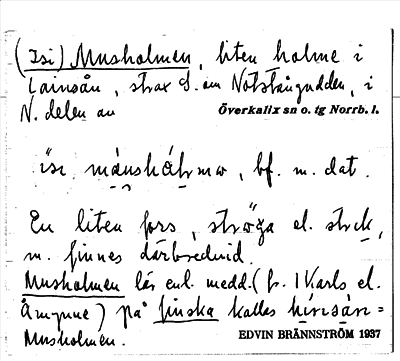 (Isi) Musholmen, liten holme i
Lainsån, strax S. om Notstångudden, i
N. delen av Överkalix sn o. tg Norrb. l.
bf. m. dat.
En liten fors, el.
m. finnes därbredvid.
Musholmen lär enl. medd. (fr. i Karls el.
Ämynne) på finska kallas
Musholmen.
EDVIN BRÄNNSTRÖM 1937